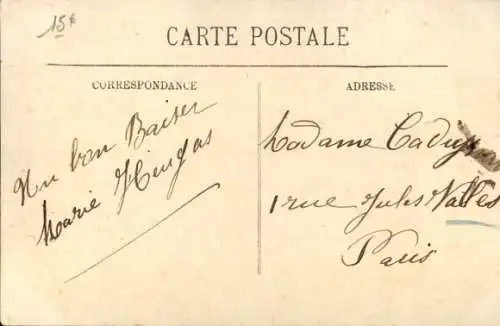 15 €
CARTE POSTALE
CORRESPONDANCE
Un bon Baiser
Marie
ADRESSE
Madame
1 rue Jules Valles
Paris